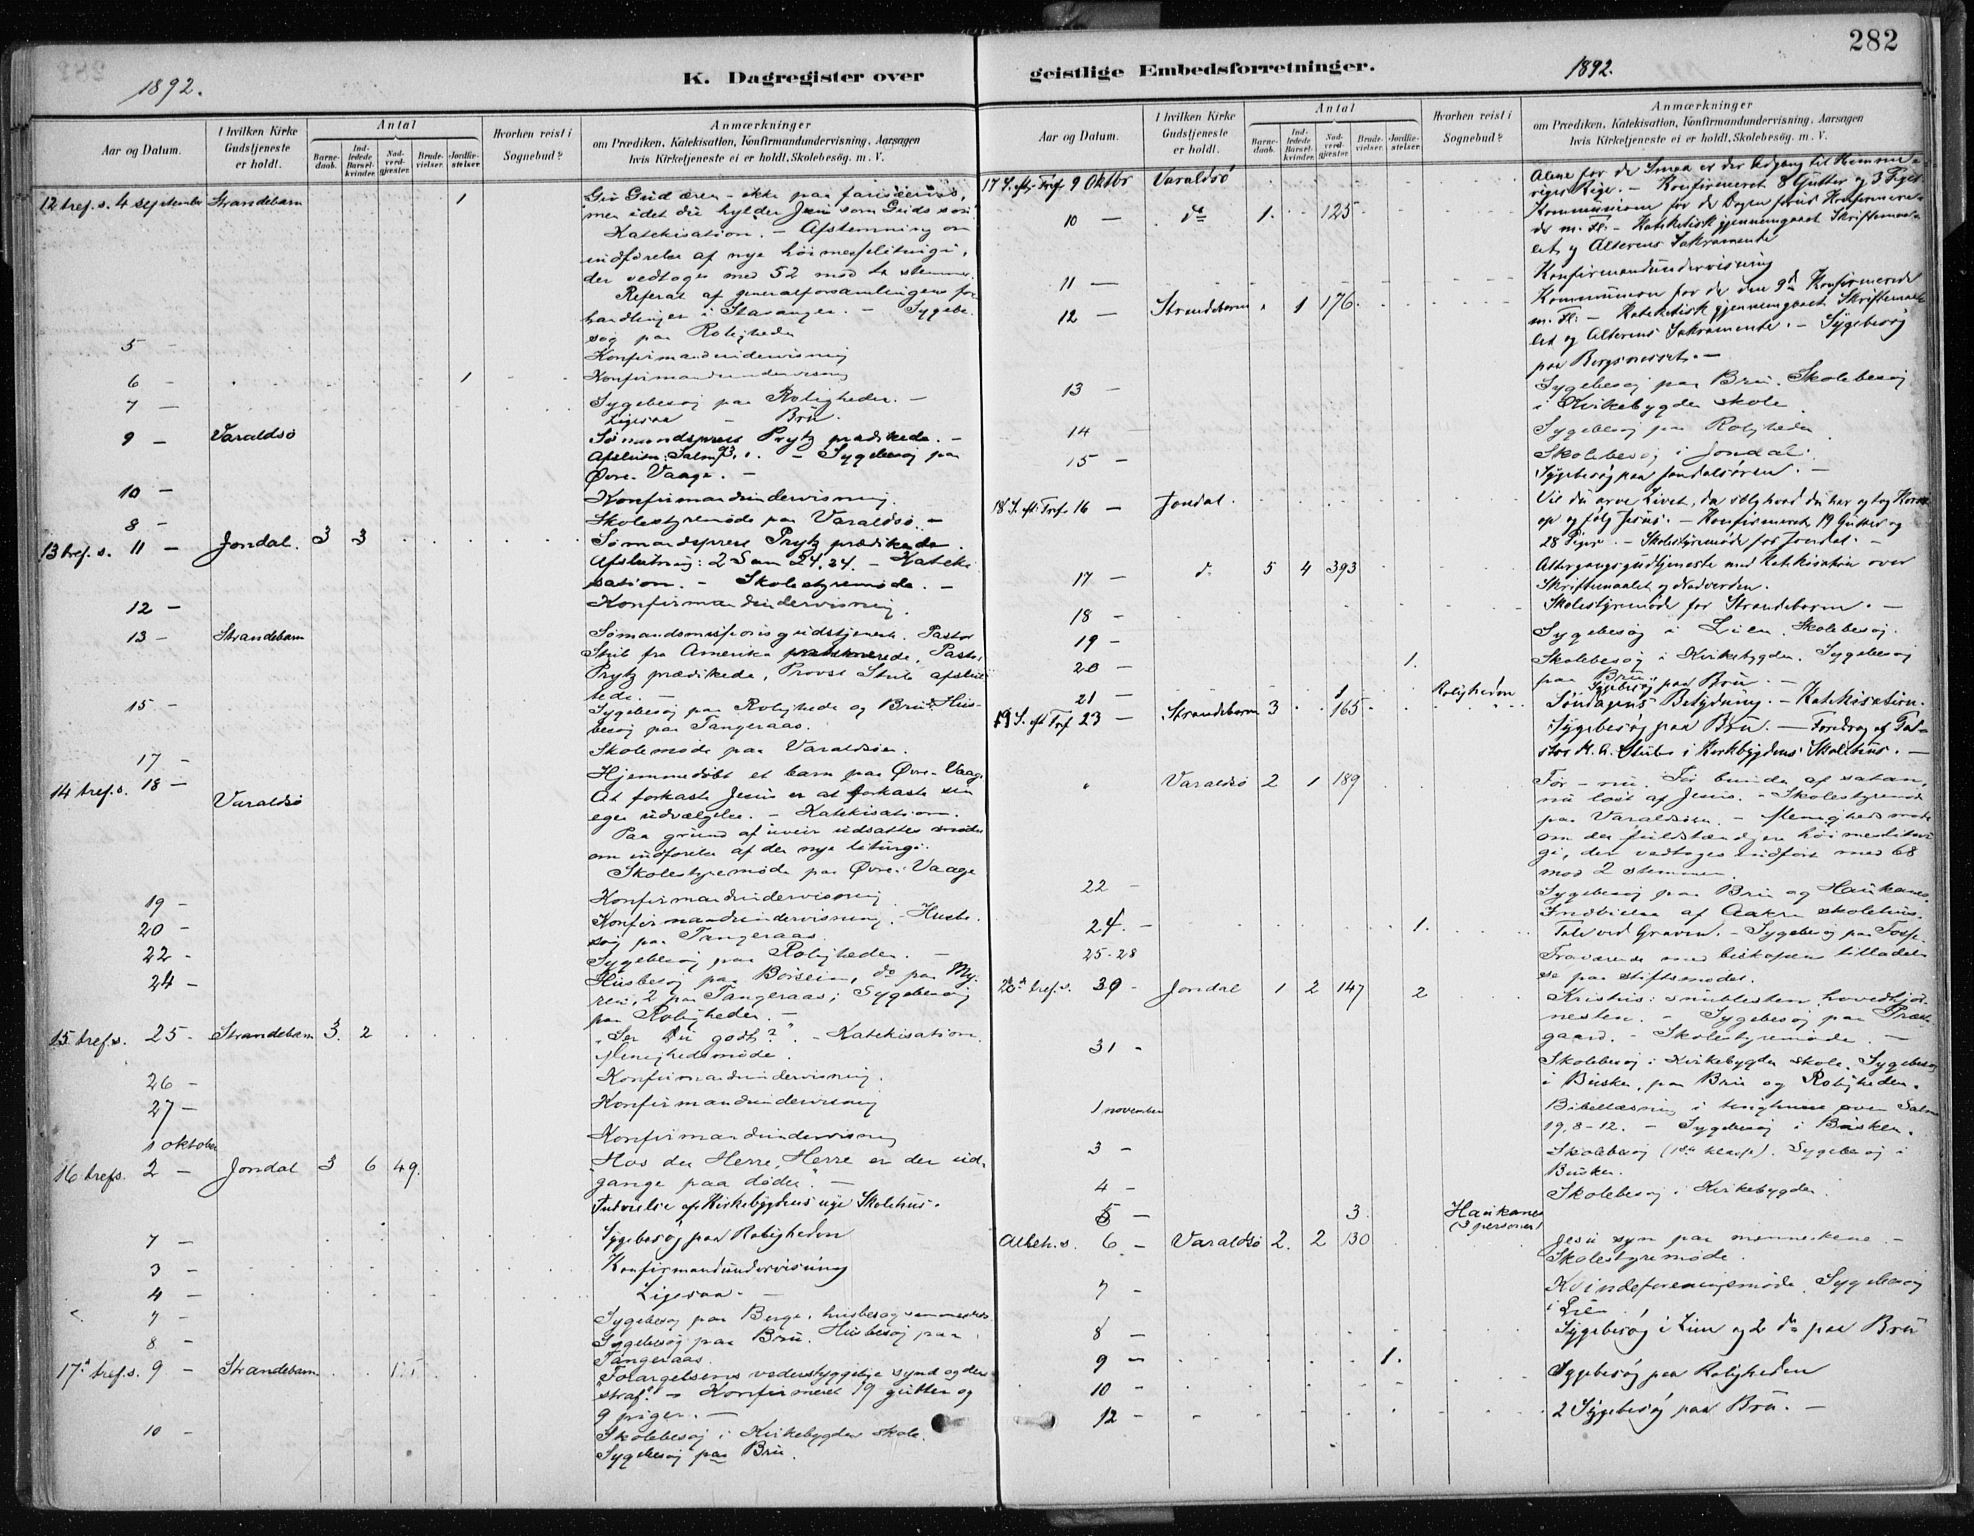 282
1892.
K. Dagregister over
Aar og Datum.
I hvilken Kirke Gudstjeneste er holdt.
Antal
Barnedaab.
Indledede Barselkvinder.
Nadverdgjester
Brudevielser.
Jordfæstelser
Hvorhen reist i Sognebud?
Anmærkninger
om Prædiken, Katekisation, Konfirmandundervisning, Aarsagen
hvis Kirketjeneste ei er holdt, Skolebesøg. m. V.
12 tref. s. 4 september Strandebarm 1 Giv Gud æren - ikke paa
men idet du hylder Jesu som Guds søn
Katekisation. - Afstemning om
indførelse af nye høimesseliturgi,
der vedtoges med 52 mod stemmer.
Referat af generalforsamlingens for
handlinger i Stavanger. - Sygebe-
søg paa Roligheden
5 - Konfirmandundervisning
6 - 1 Konfirmandundervisning
7 - Sygebesøg paa Roligheden. -
Ligesaa - Brü.
9 - Varaldsö Sømandsprest Prytz prædikede. -
Afslutn: Salm 93, 1. - Sygebesøg paa
Øvre-Vaage. -
10 - Konfirmandundervisning.
8 - Skolestyremøde paa Varaldsø. -
13 tref. s. 11 - Jondal. 3 3 Sømandsprest Prytz prædikede
Afslutning: 2 Sam 24.24. - Kateki
sation. - Skolestyremøde. -
12 - Konfirmandundervisning.
13 - Strandebarm Sømandsmissionsgudstjeneste. Pastor
Stub fra Amerika Pastor
Prytz prædikede, Provst Stub afslut
tede. -
15 - Sygebesøg paa Roligheden og Brü. Hus-
besøg paa Tangeraas.
17 - Skolemøde paa Varaldsøen.
14 tref. s. 18 - Hjemmedøbt et barn paa Øvre-Vaage
Varaldsö At forkaste Jesus er at forkaste sin
egen udvælgelse. - Katekisation.
Paa grund af uveir udsattes mødet
om indførelse af den nye liturgi.
Skolestyremøde paa Øvre-Vaage
19 - Konfirmandundervisning
20 - Konfirmandundervisning. Husbe-
søg paa Tangeraas.
22 - Sygebesøg paa Roligheden. -
24 - Husbesøg paa do paa My-
ren, 2 paa Tangeraas; Sygebesøg
paa Roligheden. -
15 tref. s. 25 - Strandebarm 3. 2 "Ser Du godt?" - Katekisation.
Menighedsmøde.
26 - Konfirmandundervisning.
27 - Konfirmandundervisning
1 oktober Konfirmandundervisning
16 trefs. 2 - Jondal 3 6 49. "Hos den Herre, Herre er der ud-
gange paa døden. -
Indvielse af Kirkebygdens nye Skolehus.
7 - Sygebesøg paa Roligheden
3 - Konfirmandundervisning
4 - Ligesaa. -
7 - Sygebesøg paa Berge, husbesøg sammesteds
8 - Sygebesøg paa Brü. Husbesøg paa
Tangeraas.
17de tref. s. 9 - Strandebarm Forargelsens vederstyggelige synd og dens
straf. - Konfirmeret 19 gutter og
9 piger. -
10 - Skolebesøg i Kirkebygdens skole.
Sygebesøg paa Brü.
geistlige Embedsforretninger.
1892.
Aar og Datum.
I hvilken Kirke Gudstjeneste er holdt.
Antal
Barnedaab.
Indledede Barselkvinder.
Nadverdgjester
Brudevielser.
Jordfæstelser.
Hvorhen reist i Sognebud?
Anmærkninger
om Prædiken, Katekisation, Konfirmandundervisning, Aarsagen
hvis Kirketjeneste ei er holdt, Skolebesøg. m. V.
17 S. eft. Tref. 9 Oktbr Varaldsö Alene for de Smaa er der Adgang til Himme-
riges Rige. - Konfirmeret 8 Gutter og 3 Piger
10 - do 1. 125 Kommunion for de Dagen forud Konfirmere-
de m. Fl. - Kateketisk gjennemgaaet Skriftemaa-
let og Alterens Sakramente
11 - Konfirmandundervisning
12 - Strandebarm 1 176 Kommunion for de den 9de Konfirmerede
m. Fl. - Kateketisk gjennemgaaet Skriftemaa-
let og Alterens Sakramente. - Sygebesøg
paa Bergsnesset. -
13 - Sygebesøg paa Brü. Skolebesøg
i Kirkebygden skole
14 - Sygebesøg paa Roligheden
15 - Skolebesøg i Jondal.
Sygebesøg paa Jondalsören. -
18 S. eft. Tref. 16 - Jondal. Vil du arve Livet, da sælg hvad du har og tag Korset
op og følg Jesus. - Konfirmeret 19 Gutter og
28 Piger. - Skolestyremøde for Jondal. -
17 - do 5 4 393 Altergangsgudstjeneste med Katekisation over
Skriftemaalet og Nadverden.
18 - Skolestyremøde for Strandebarm. -
19 - Sygebesøg i Lien. Skolebesøg.
20 - 1. Skolebesøg i Kirkebygden. Sygebesøg
paa Brü.
21 - 1 Roligheden Sygebesøg paa Brü. -
19 S. eft Tref 23 - Strandebarm 3 165 Søndagens Betydning. - Katekisation.
Sygebesøg paa Brü. - Foredrag af Pa-
stor H. A. Stub i Kirkbygdens Skolehus. -
" Varaldsö 2 1 189 Før - nu. Før bunden af satan,
nu løst af Jesus. - Skolestyremøde
paa Varaldsøen. - Menighedsmøde
om den fuldstændigere høimesselitur
gi, der vedtoges indført med 68
mod 2 stemmer.
22 - Sygebesøg paa Brü og Haukanes.
Indvielse af Aakre skolehus.
24. - 1. Tale ved Graven. - Sygebesøg paa
25-28 Fraværende med biskopens tilladel
se paa stiftsmødet.
20de tref. s. 30 - Jondal 1 2 147 2 Kristus: snublesten, hovedhjør-
nesten. - Sygebesøg paa Præst-
gaard. - Skolestyremøde. -
31 - Skolebesøg i Kirkebygden skole. Sygebesøg
i Busken, paa Brü og Roligheden.
1 november Bibellæsning i over Salme
19, 8-12. - Sygebesøg i Busken.
3 - Skolebesøg (1ste klasse). Sygebesøg i
Busken.
4 - Skolebesøg i Kirkebygden.
5 - 3. Haukanes
(3 personer)
Alleh. s. 6 - Varaldsö 2. 2 130 Jesu syn paa menneskene -
Skolestyremøde.
7 - Kvindeforeningsmøde. Sygebesøg
i Lien.
8 - Sygebesøg i Lien og 2 do paa Brü
9 - 1. Sygebesøg paa Roligheden
10 -
12 - 2 Sygebesøg paa Brü. -